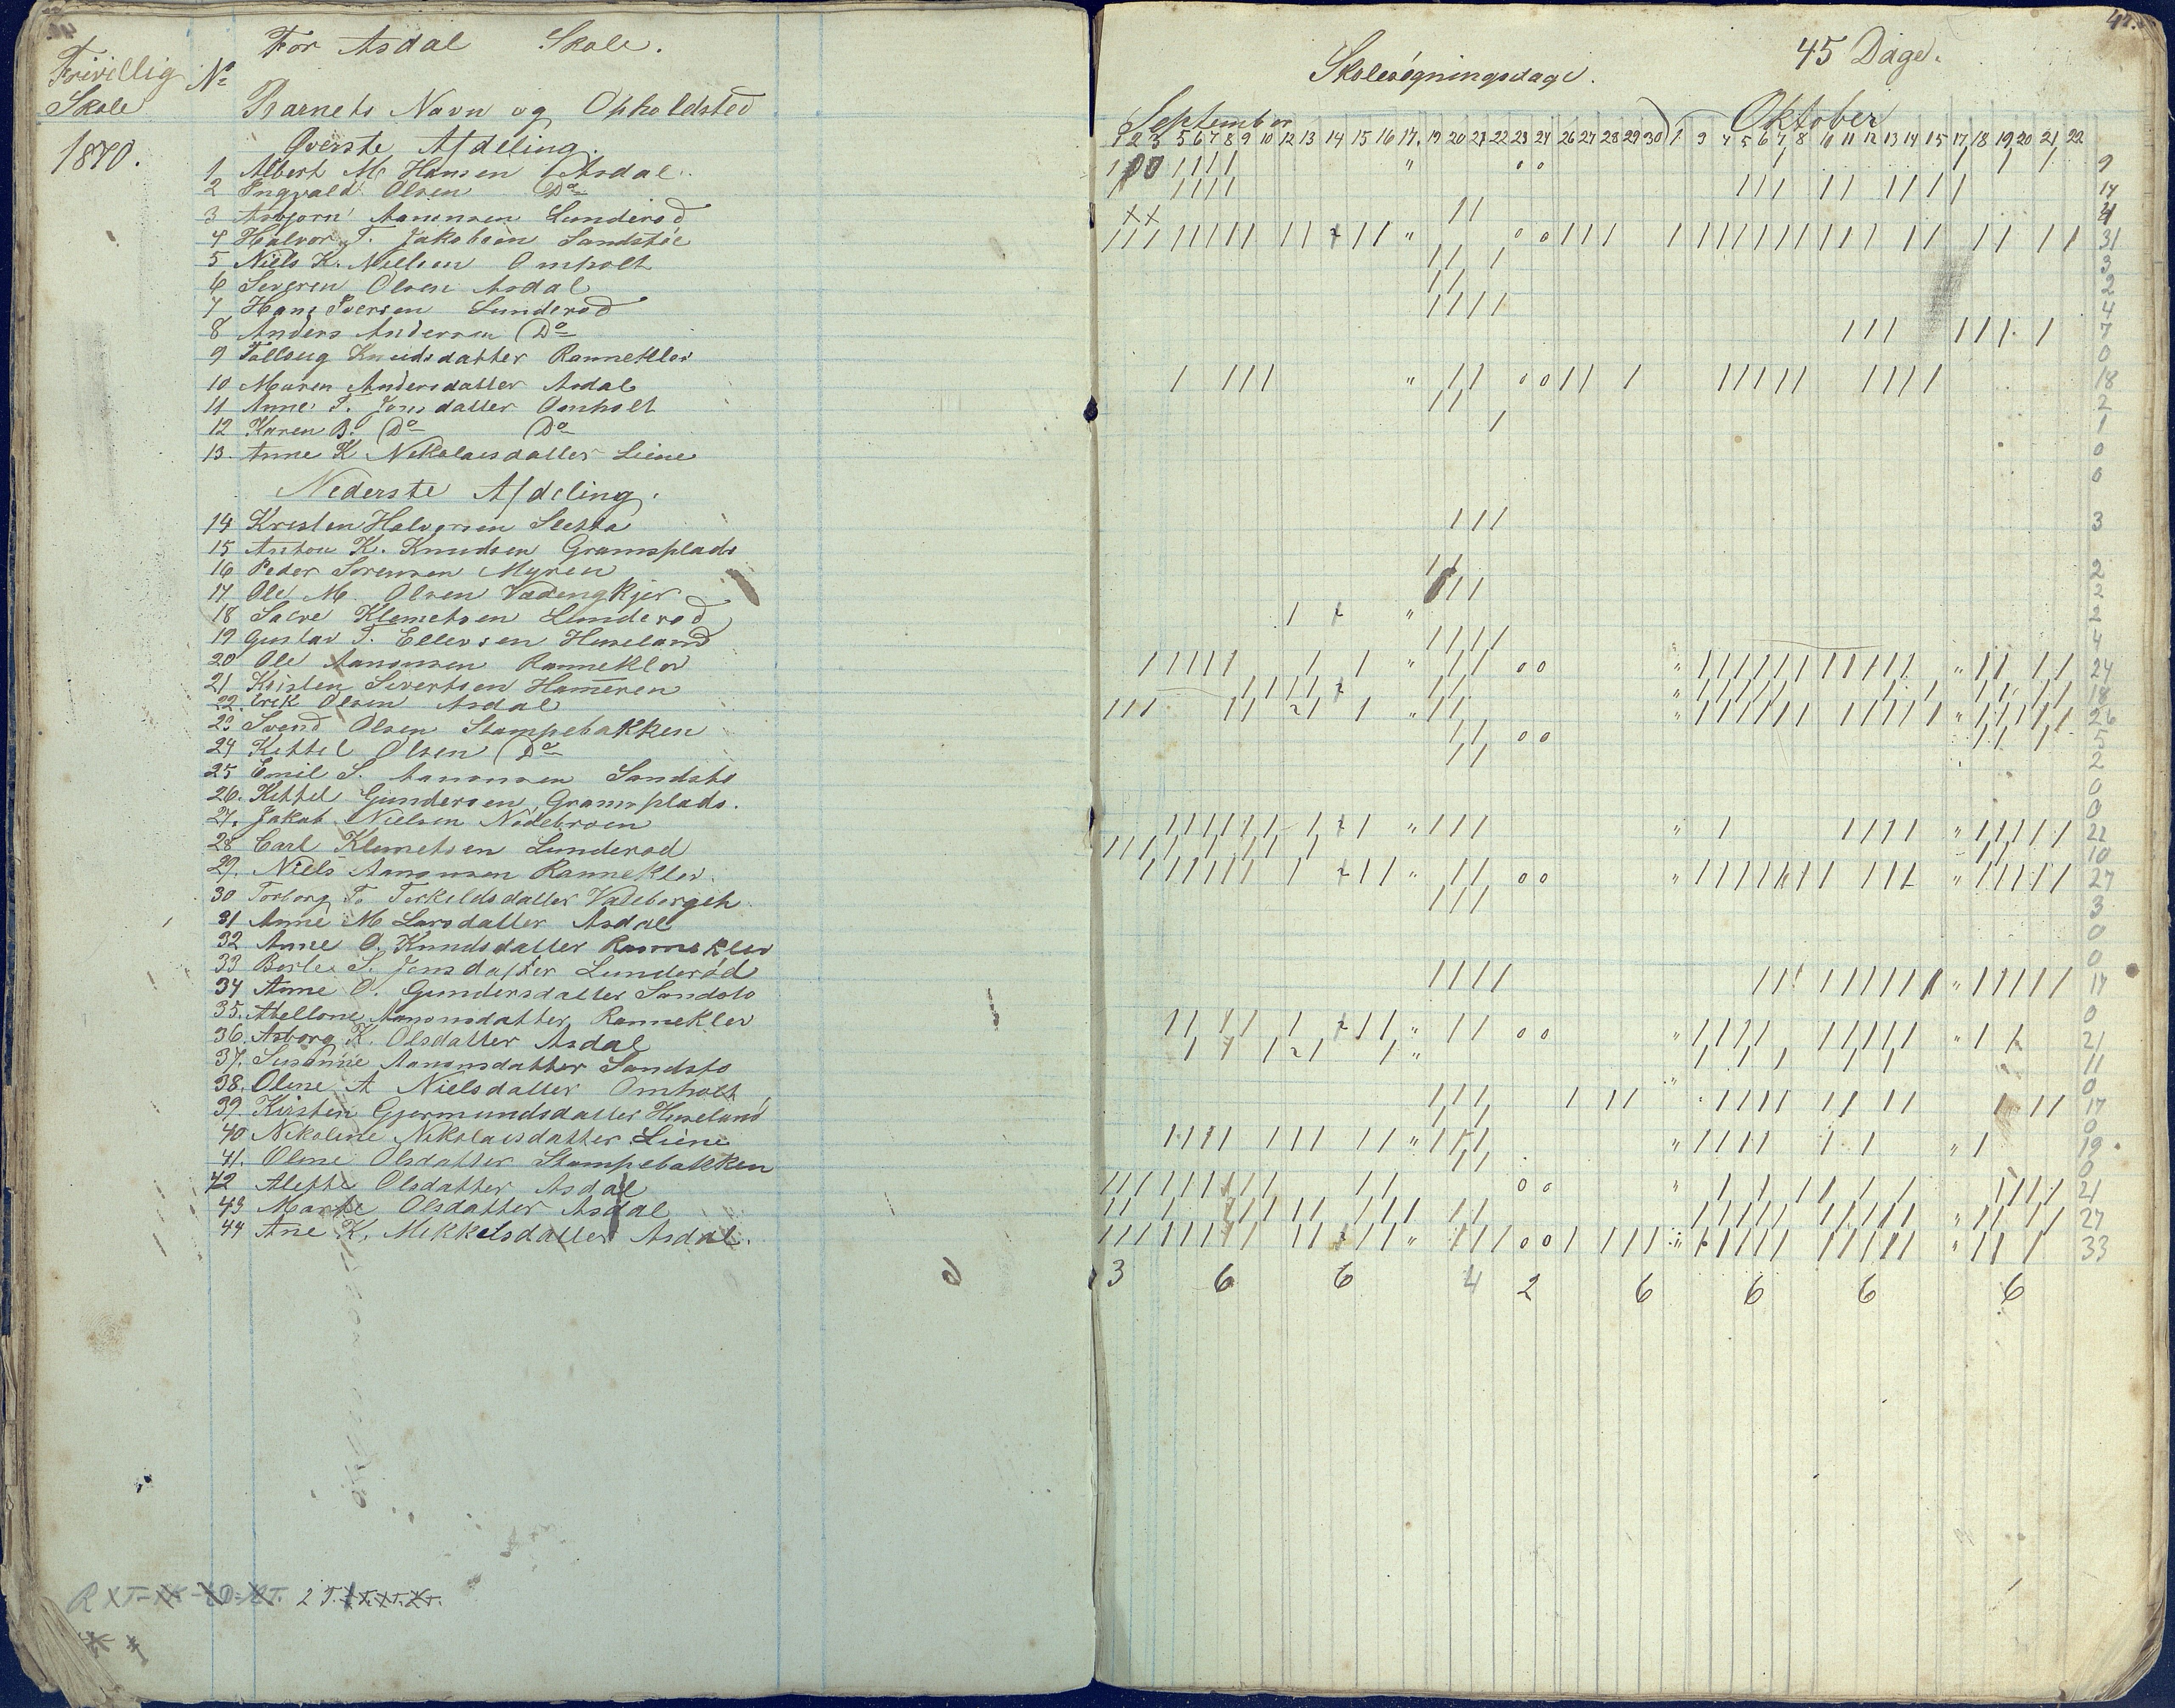 For Asdal Skole.
Frivillig Skole
1870.
No
Barnets Navn og Opholdsted
Øverste Afdeling.
1 Albert M. Hansen Asdal.
2 Ingvald Olsen Do
3 Asbjørn Aanonsen Lunderød
4 Halvor T. Jakobsen Sandstøe
5 Niels K. Nielsen Omholt
6 Severen Olsen Asdal
7 Hans Iversen Lunderød
8 Anders Andersen Do
9 Knudsdatter Ranneklev
10 Maren Andersdatter Asdal
11 Anne T. Jonsdatter Omholt
12 Karen B. Do Do
13. Anne K. Nikolaisdatter Liene
Nederste Afdeling.
14 Kristen Halvorsen Sletta
15 Anton K. Knudsen Gramsplads
16 Peder Sørensen Myren
17 Ole M. Olsen
18 Klemetsen Lunderød
19 Gustav T. Ellevsen Huseland
20 Ole Aanonsen Ranneklev
21 Kristen Sivertsen Hameren
22. Erik Olsen Asdal
23 Svend Olsen Stampebakken
24 Kittel Olsen Do
25 Emil S. Aanonsen Sandstø
26. Kittel Gundersen Gramsplads.
27. Jakob Nielsen Nødebroen
28 Carl Klemetsen Lunderød
29. Niels Aanonsen Ranneklev.
30 Torborg T. Terkeldsdatter
31 Anne M Larsdatter Asdal
32 Anne O. Knudsdatter Ranneklev
33 S. Jensdatter Lunderød
34 Anne O. Gundersdatter Sandstø
35. Abellone Aanonsdatter Ranneklev
36. Asborg K. Olsdatter Asdal
37. Susanne Aanonsdatter Sandstø
38. Oline A Nielsdatter Omholt
39. Kirsten Gjermundsdatter Huseland
40 Nikoline Nikolaisdatter Liene
41. Oline Olsdatter Stampebakken
42 Alette Olsdatter Asdal
43 Marte Olsdatter Asdal
44 Ane K. Mikkelsdatter Asdal.
Skolesøgningsdage.
45 Dage.
September
Oktober
1 2 3 5 6 7 8 9 10 12 13 14 15 16 17. 19 20 21 22 23 24 26 27 28 29 30 1 3 4 5 6 7 8 10 11 12 13 14 15 17 18 19 20 21 22
9
14
4
31
3
2
4
7
0
18
2
1
0
0
3
2
2
2
4
24
18
26
5
2
0
0
22
10
27
3
0
0
17
0
21
11
0
17
0
19
0
21
27
33
3 6 6 4 2 6 6 6 6